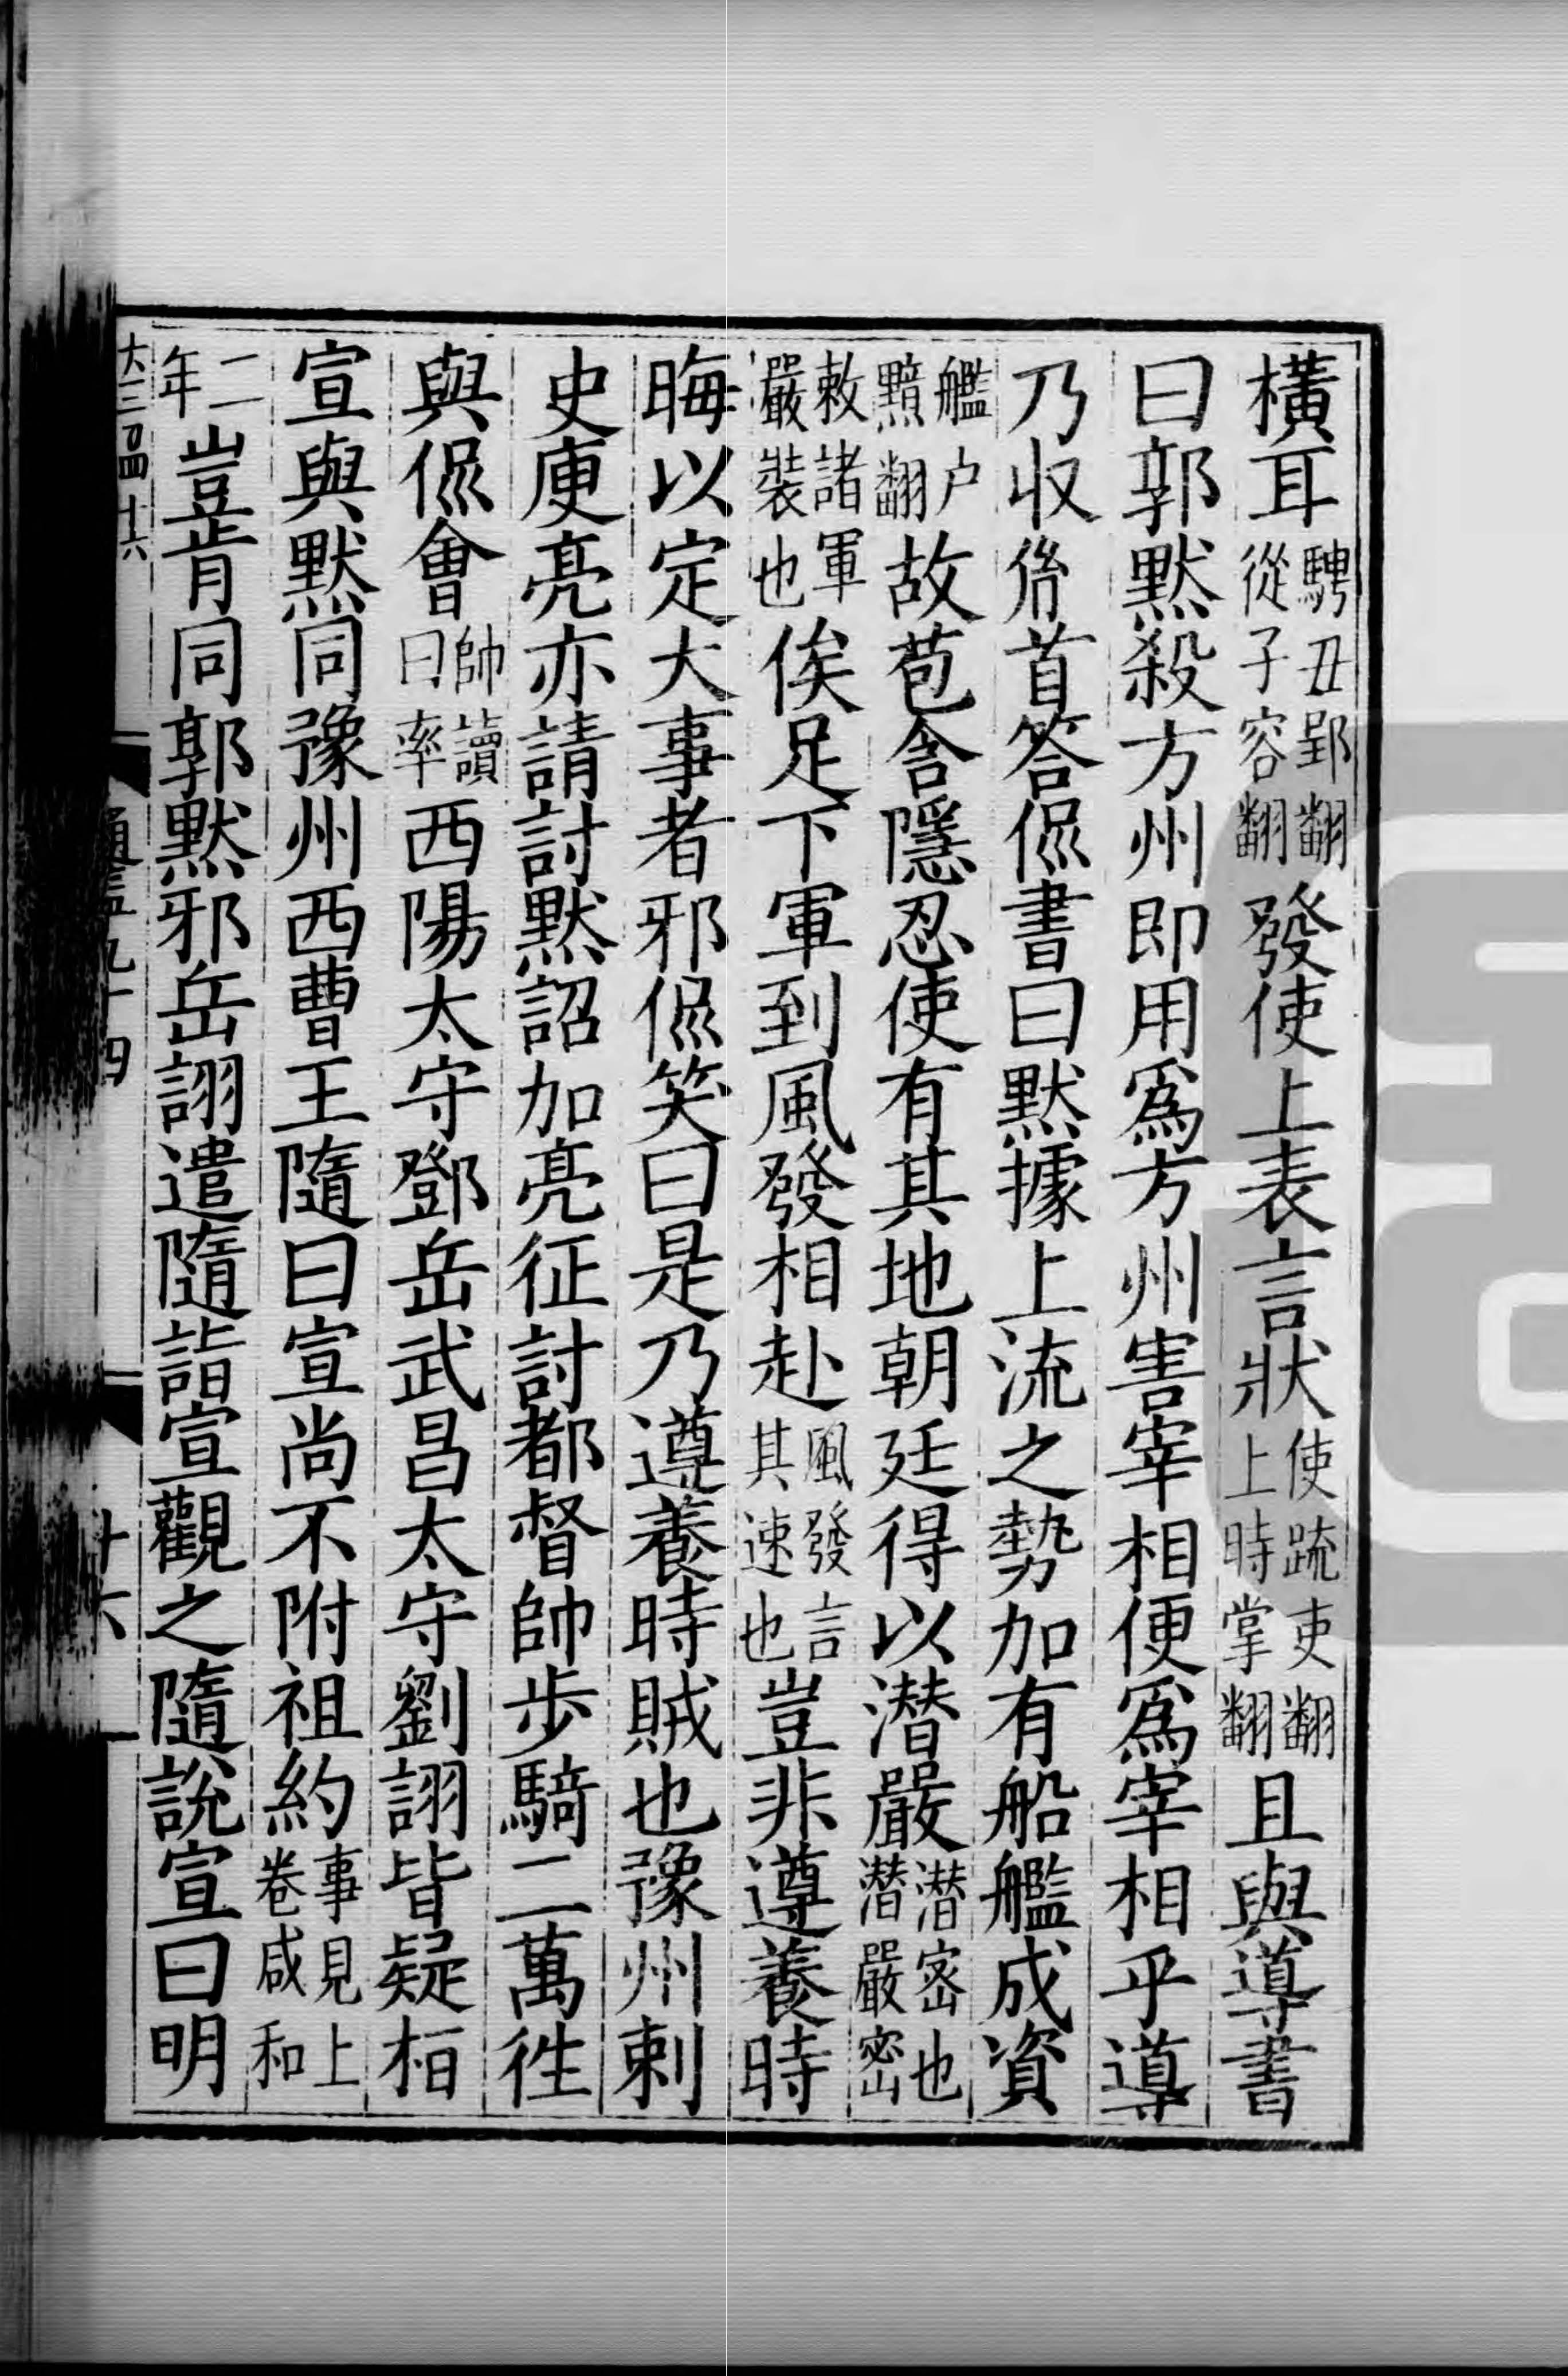 橫耳騁丑郢翻從子容翻發使上表言狀使疏吏翻上時掌翻且與導書
曰郭默殺方州即用爲方州害宰相便爲宰相乎導
乃收㣧首答偘書曰默據上流之勢加有船艦成資
艦户黯翻故苞含隱忍使有其地朝廷得以潜嚴潜密也潜嚴密
敕諸軍嚴裝也俟足下軍到風發相赴風發言其速也豈非遵養時
晦以定大事者邪偘笑曰是乃遵養時賊也豫州刺
史庾亮亦請討默詔加亮征討都督帥步騎二萬徃
與偘會帥讀曰率西陽太守鄧岳武昌太守劉詡皆疑桓
宣與默同豫州西曹王隨曰宣尚不附祖約事見上卷咸和
二年豈肯同郭默邪岳詡遣隨詣宣觀之隨說宣曰明
通鑑九十四
十六